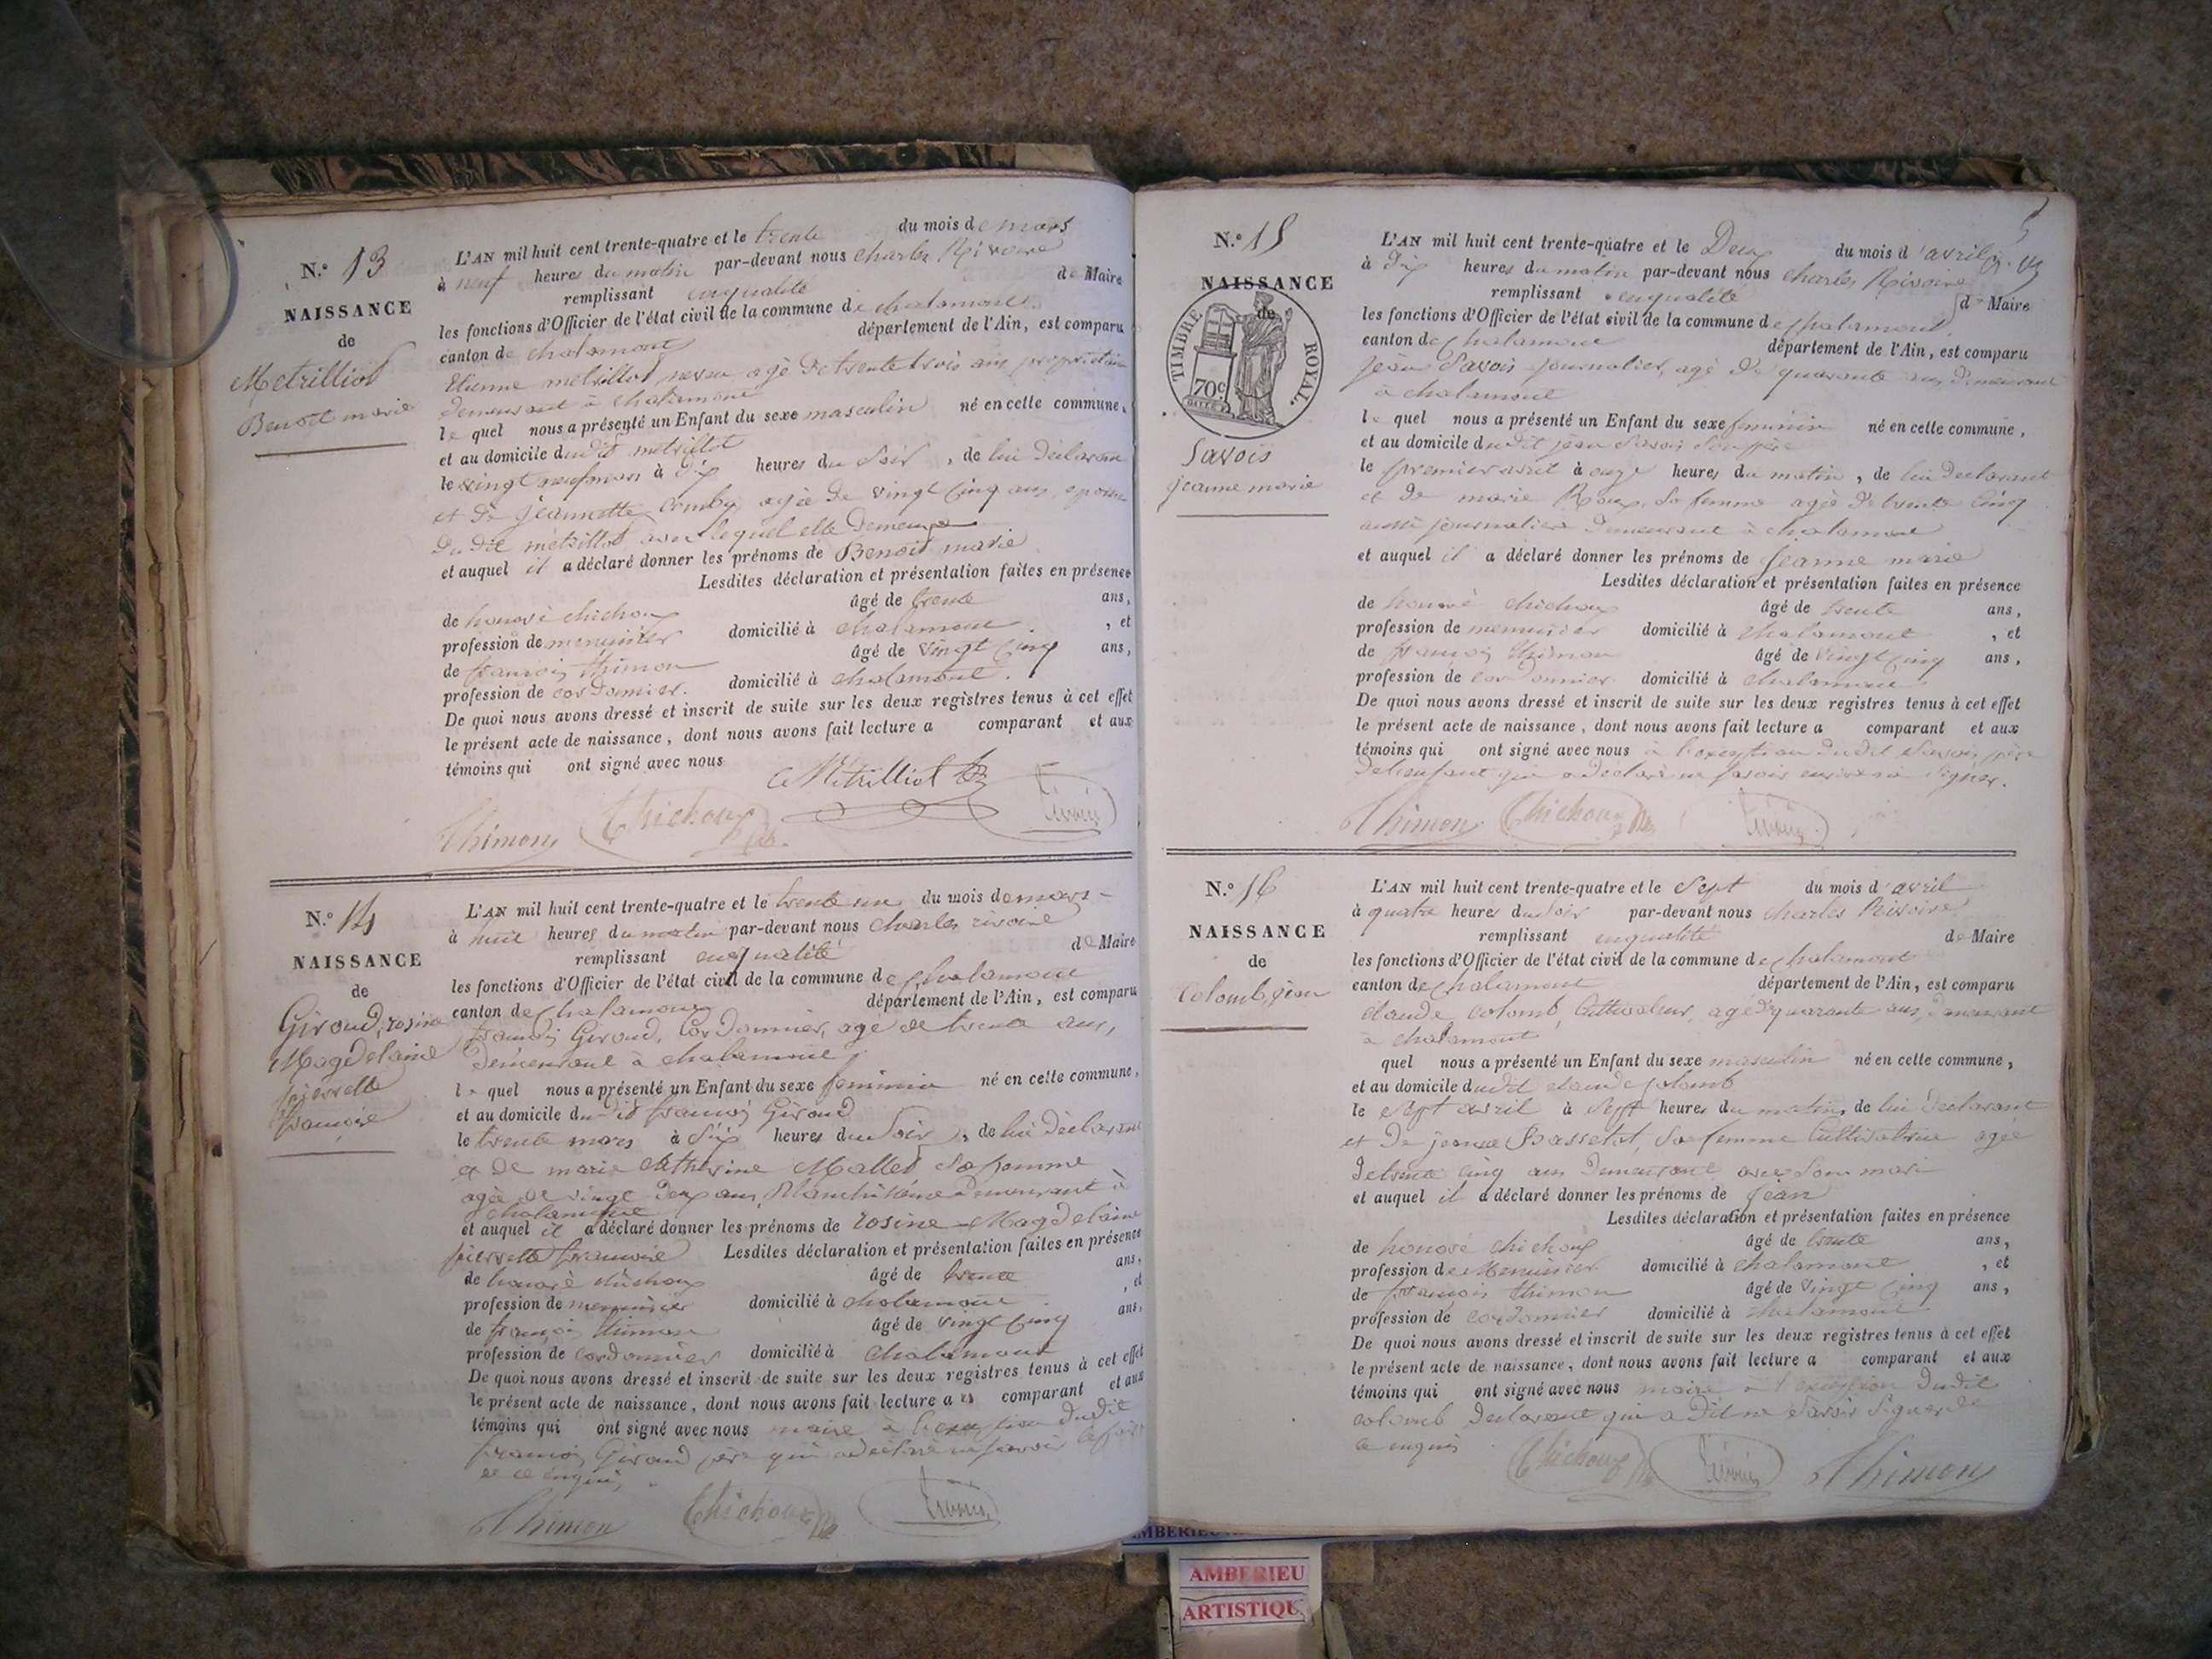 N.º 13
NAISSANCE
de
Metrilliot
Benoit marie
L'AN mil huit cent trente-quatre et le trente du mois de mars
à neuf heures du matin par-devant nous charles Rivoire
remplissant enqualité de Maire
les fonctions d'Officier de l'état civil de la commune de chalamont
canton de chalamont département de l'Ain, est comparu
Etienne metrillot neveu agé de trente trois ans propriétaire
demeurant à chalamont
le quel nous a présenté un Enfant du sexe masculin né en cette commune,
et au domicile dudit metrillot
le vingt neuf mars à dix heures du soir, de lui déclarant
et de jeannette comby agée de vingt cinq ans, epouse
dudit metrillot avec lequel elle demeure
et auquel il a déclaré donner les prénoms de Benoit marie
Lesdites déclaration et présentation faites en présence
de honoré chichoux âgé de trente ans,
profession de menuisier domicilié à chalamont, et
de françois thimon âgé de vingt cinq ans,
profession de cordonnier. domicilié à chalamont.
De quoi nous avons dressé et inscrit de suite sur les deux registres tenus à cet effet
le présent acte de naissance, dont nous avons fait lecture a comparant et aux
témoins qui ont signé avec nous
Métrilliot
Thimon Chichoux
N.º 14
NAISSANCE
de
Giroud, rosine
Magdelaine
pierrette
françoise
L'AN mil huit cent trente-quatre et le trente un du mois de mars
à huit heures du matin par-devant nous charles rivoire
remplissant enqualité de Maire
les fonctions d'Officier de l'état civil de la commune de chalamont
canton de chalamont département de l'Ain, est comparu
françois Giroud, cordonnier, agé de trente ans,
demeurant à chalamont
le quel nous a présenté un Enfant du sexe feminin né en cette commune,
et au domicile du dit françois Giroud
le trente mars à dix heures du soir, de lui déclarant
et de marie catherine Mallet sa femme
agée de vingt deux ans, demeurant à
chalamont
et auquel il a déclaré donner les prénoms de rosine Magdelaine
pierrette françoise Lesdites déclaration et présentation faites en présence
de honoré chichoux âgé de trente ans,
profession de menuisier domicilié à chalamont, et
de françois thimon âgé de vingt cinq ans,
profession de cordonnier domicilié à chalamont
De quoi nous avons dressé et inscrit de suite sur les deux registres tenus à cet effet
le présent acte de naissance, dont nous avons fait lecture a comparant et aux
témoins qui ont signé avec nous maire à l'exception dudit
françois Giroud père qui a déclaré ne savoir le faire
de ce enquis
Thimon Chichoux
N.º 15
NAISSANCE
de
TIMBRE ROYAL.
70c
Savois
jeanne marie
L'AN mil huit cent trente-quatre et le Deux du mois d'avril
à dix heures du matin par-devant nous charles Rivoire
remplissant enqualité de Maire
les fonctions d'Officier de l'état civil de la commune de chalamont
canton de chalamont département de l'Ain, est comparu
jean Savois journalier, agé de quarante ans, demeurant
à chalamont
le quel nous a présenté un Enfant du sexe feminin né en cette commune,
et au domicile dudit jean Savois son père
le premier avril à onze heures du matin, de lui déclarant
et de marie Roux, sa femme agée de trente cinq
aussi journaliere demeurant à chalamont
et auquel il a déclaré donner les prénoms de jeanne marie
Lesdites déclaration et présentation faites en présence
de honoré chichoux âgé de trente ans,
profession de menuisier domicilié à chalamont, et
de françois thimon âgé de vingt cinq ans,
profession de cordonnier domicilié à chalamont
De quoi nous avons dressé et inscrit de suite sur les deux registres tenus à cet effet
le présent acte de naissance, dont nous avons fait lecture a comparant et aux
témoins qui ont signé avec nous à l'exception dudit Savois père
de l'enfant qui a déclaré ne savoir ni signer.
Thimon Chichoux
N.º 16
NAISSANCE
de
Colomb, jean
L'AN mil huit cent trente-quatre et le sept du mois d'avril
à quatre heures du soir par-devant nous charles Rivoire
remplissant enqualité de Maire
les fonctions d'Officier de l'état civil de la commune de chalamont
canton de chalamont département de l'Ain, est comparu
claude colomb, cultivateur, agé de quarante ans, demeurant
à chalamont
quel nous a présenté un Enfant du sexe masculin né en cette commune,
et au domicile dudit claude colomb
le sept avril à sept heures du matin, de lui déclarant
et de jeanne Bassetot, sa femme cultivatrice agée
de trente cinq ans demeurant avec son mari
et auquel il a déclaré donner les prénoms de jean
Lesdites déclaration et présentation faites en présence
de honoré chichoux âgé de trente ans,
profession de Menuisier domicilié à chalamont, et
de françois thimon âgé de vingt cinq ans,
profession de cordonnier domicilié à chalamont
De quoi nous avons dressé et inscrit de suite sur les deux registres tenus à cet effet
le présent acte de naissance, dont nous avons fait lecture a comparant et aux
témoins qui ont signé avec nous maire à l'exception dudit
colomb declarant qui a dit ne savoir signer de
ce enquis
Chichoux Thimon
AMBERIEU
ARTISTIQUE